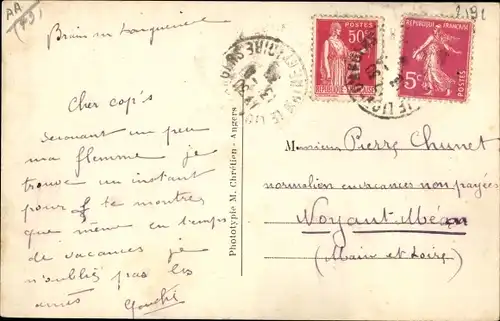 AA
(49)
2191
Brain sur Longuenée
Cher cop's
secouant un peu
ma flemme je
trouve un instant
pour te montrer
que même en temps
de vacances je
n'oublie pas les
amis
Phototypie M. Chrétien - Angers
POSTES
50c
REPUBLIQUE FRANÇAISE
REPUBLIQUE FRANÇAISE
5c
POSTES
Monsieur Pierre Chunet
normalien en vacances non payées
Noyant-Méon
(Maine et Loire)